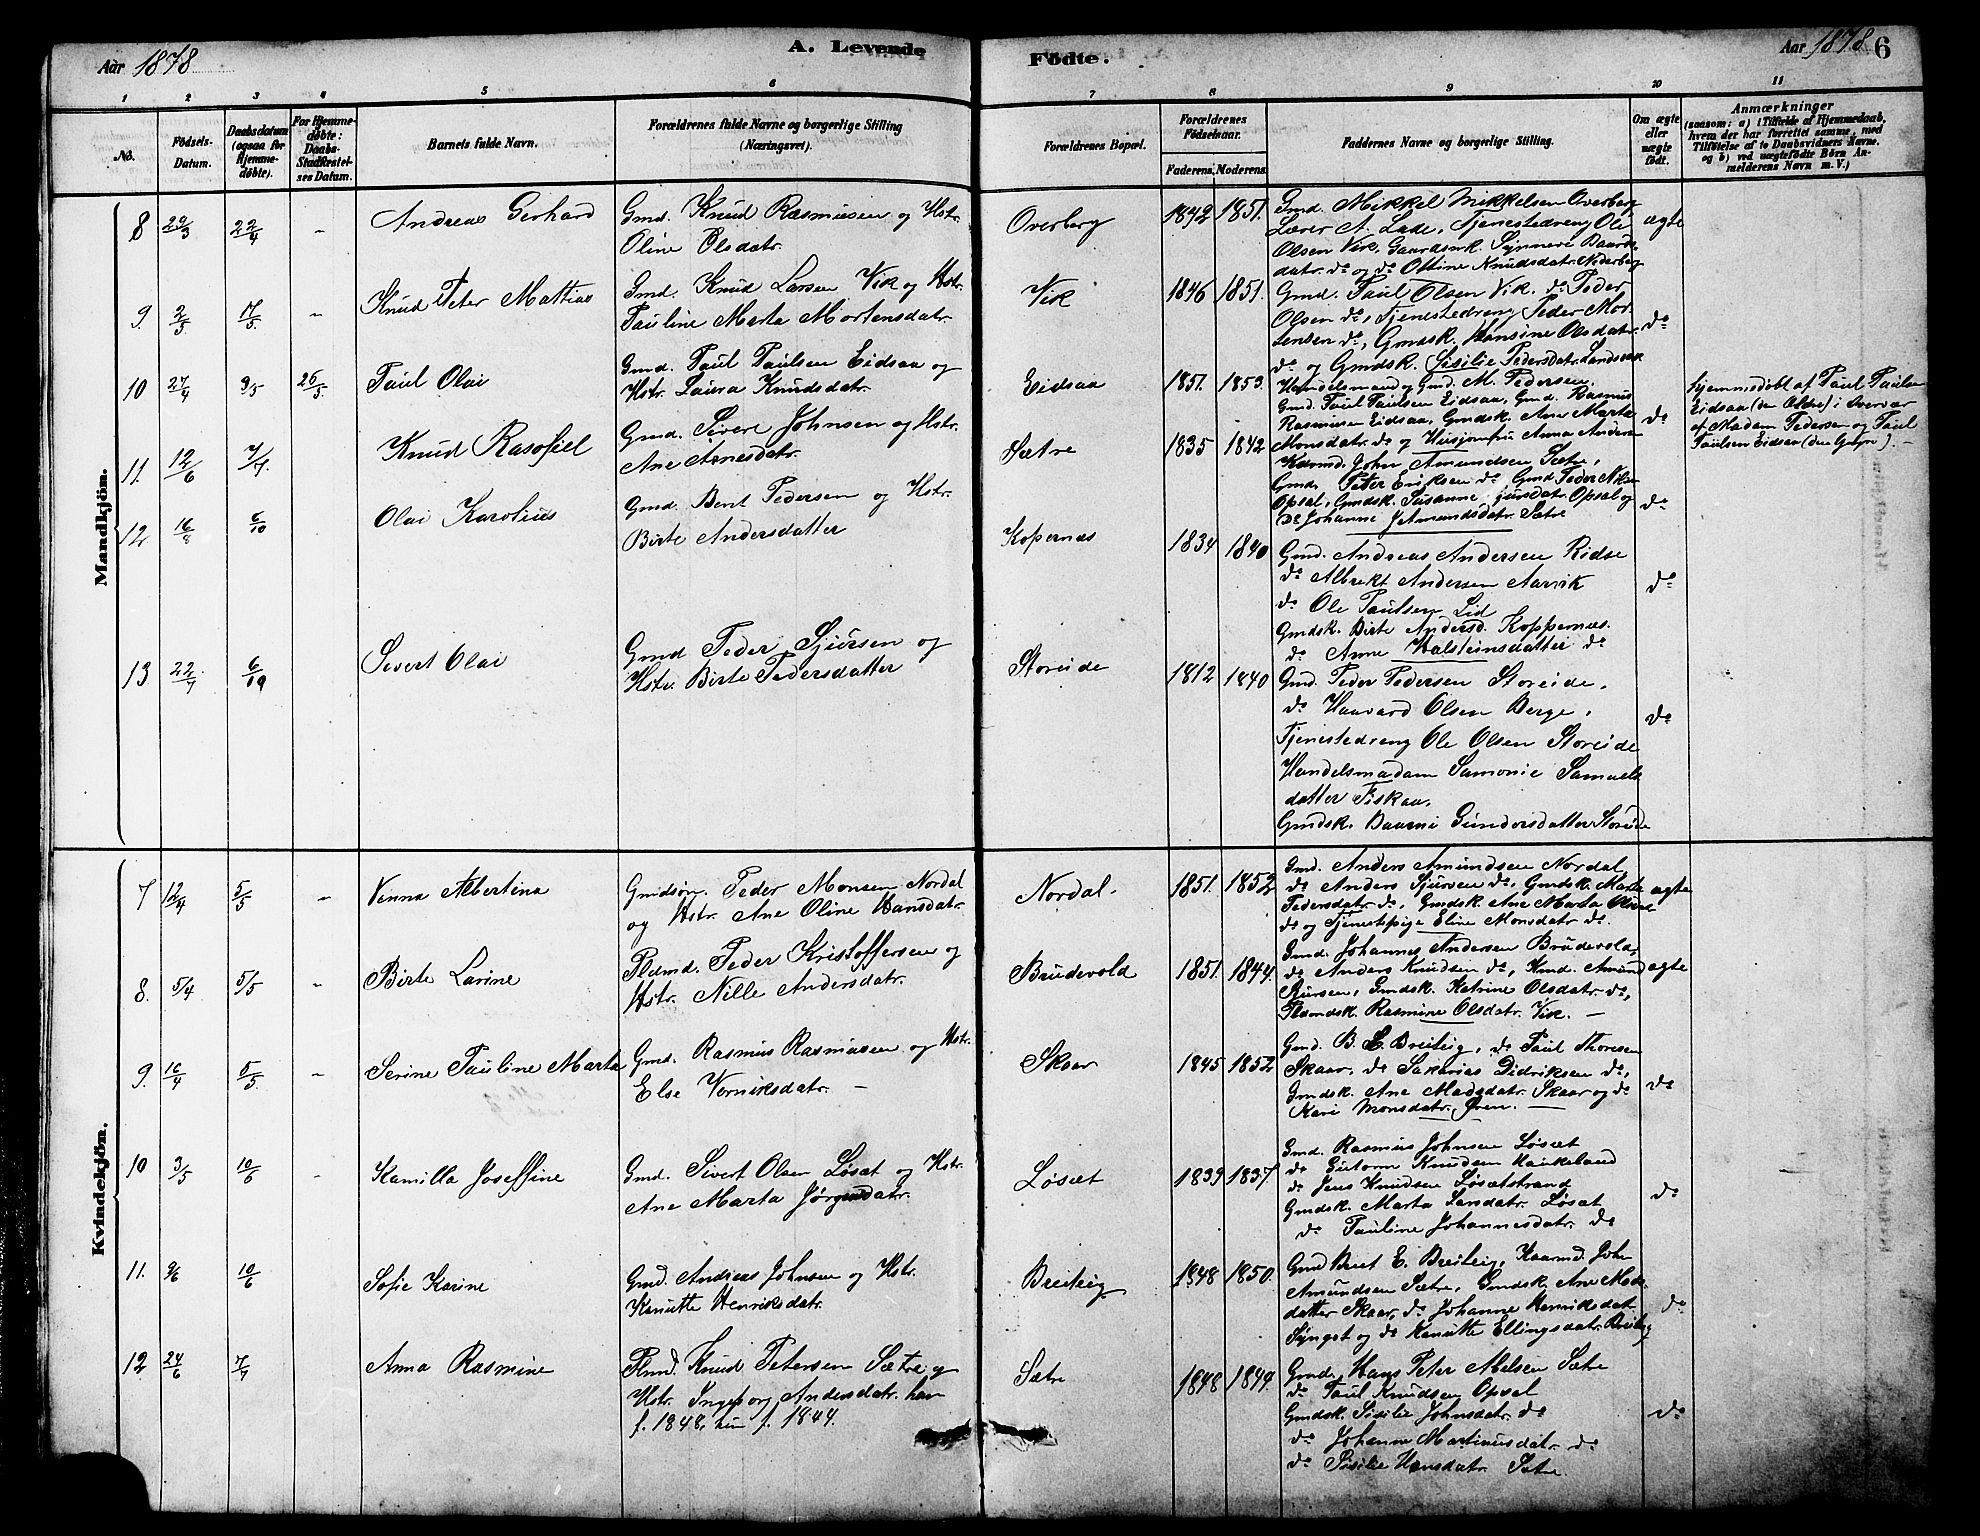 Aar 1878
A. Levende
Fødte.
Aar 1878
6
1 2 3 4 5 6 7 8 9 10 11
No.
Fødsels-Datum.
Daabsdatum (ogsaa for Hjemmedøbte).
For Hjemmedøbte: Daabs-Stadfæstelses Datum.
Barnets fulde Navn.
Forældrenes fulde Navne og borgerlige Stilling (Næringsvei).
Forældrenes Bopæl.
Forældrenes Fødselsaar.
Faderens. Moderens.
Faddernes Navne og borgerlige Stilling.
Om ægte eller uægte født.
Anmærkninger
(saasom: a) i Tilfælde af Hjemmedaab, hvem der har forrettet samme, med Tilføielse af to Daabsvidners Navne, og b) ved uægtefødte Børn Anmelderens Navn m. V.)
Mandkjön.
8 29/3 22/4 - Andreas Gerhard
Gmd. Knud Rasmusen og Hstr.
Oline Olsdatr.
Overberg 1842 1851.
Gmd. Mikkel Mikkelsen Overberg
Lærer A. Lade, Tjenestedreng Ole
Olsen Vik, Gaardmk. Synneve Baards-
datr. do og do Ottine Knudsdatr. Nederberg
ægte
9. 2/5 17/5 - Knud Peter Mattias
Gmd. Knud Larsen Vik og Hstr.
Pauline Marta Mortensdatr.
Vik 1846 1851.
Gmd. Paul Olsen Vik. do Peder
Olsen do, Tjenestedreng Peder Mor-
tensen do, Gmdsk. Hansine Olsdatr.
do og Gmdsk. Sisilie Pedersdatr. Landsvik
do
10 27/4 9/5 26/5. Paul Olai
Gmd. Paul Paulsen Eidsaa og
Hstr. Laura Knudsdatr.
Eidsaa 1851. 1853.
Handelsmand og Gmd. M. Pedersen.
Gmd. Paul Paulsen Eidsaa, Gmd. Rasmus
Rasmusen Eidsaa, Gmdsk. Ane Marte
Monsdatr. do og Husjomfru Anna Andersen
do
hjemmedøbt af Paul Paulsen
Eidsaa (den Ældre) i Overvær
af Madam Pedersen og Paul
Paulsen Eidsaa (den Yngre). -
11. 12/6 7/7. Knud Rasofiel
Gmd. Sivert Johnsen og Hstr.
Ane Arnesdatr.
Sætre 1835 1842
Kaarmd. John Amundsen Sætre,
Gmd. Peter Eriksen do, Gmd Peder Nils
Opsal, Gmdsk. Susanne Sjursdatr. Opsal og
do Johanne J Amundsdatr. Sætre
do
12 16/8 6/10 Olai Karolius
Gmd. Bent Pedersen og Hstr.
Birte Andersdatter
Kopernæs 1834 1840
Gmd. Andreas Andersen Ridse
do Albrekt Andersen Aarvik
do Ole Paulsen Lid
Gmdsk. Birte Andersd. Koppernæs.
do Anne Halsteinsdatter do
do
13 22/7 6/10 Sivert Olai
Gmd Peder Sjursen og
Hstr. Birte Pedersdatter
Storeide 1812 1840
Gmd. Peder Pedersen Storeide,
do Haavard Olsen Berge,
Tjenestedreng Ole Olsen Storeide
Handelsmadam Samonie Samuels
datter Fiskaa,
Gmdsk. Baarni Gundersdatter Storeide
do
Kvindekjön.
7 12/4 5/5 - Venna Albertina
Gmdsøn. Peder Monsen Nordal
og Hstr. Ane Oline Hansdatr.
Nordal. 1851. 1852
Gmd. Anders Amundsen Nordal,
do Anders Sjursen do, Gmdsk. Marte
Pedersdatr. do, Gmdsk. Ane Marta Olsdatr
do og Tjenestepige Eline Monsdatr. do.
ægte
8. 5/4 5/5 - Birte Larine
Pldmd. Peder Kristoffersen og
Hstr. Nille Andersdatr.
Brudevold 1851. 1844.
Gmd. Johannes Andersen Brudevold,
do Anders Knudsen do, Kmd. Amund
Sjursen, Gmdsk. Katrine Olsdatr. do,
Pldmdsk. Rasmine Olsdatr. Vik. -
ægte
9. 16/4 5/5 - Serine Pauline Marta
Gmd. Rasmus Rasmusen og Hstr.
Else Verniksdatr. -
Skaar 1845 1852
Gmd. B. E. Breiteig, do Paul Thoresen
Skaar, do Sakarias Didriksen do,
Gmdsk. Ane Madsdatr. Skaar og do
Kari Monsdatr. Øren. -
do
10 3/5 10/6 - Kamilla Joseffine
Gmd. Sivert Olsen Løsæt og Hstr.
Ane Marta Jørgendatr.
Løsæt 1839 1837.
Gmd. Rasmus Johnsen Løsæt
do Guttorm Knudsen Haukeland
do Jens Knudsen Løsætstrand
Gmdsk. Marta Larsdatr. Løsæt
do Pauline Johannesdatr. do
do
11. 9/6 10/6 Sofie Karine
Gmd. Andreas Johnsen og Hstr.
Kanutte Henriksdatr.
Breiteig 1848 1850.
Gmd Bret E. Breiteig, Kaarmd. John
Amundsen Sætre, Gmdsk. Ane Mads-
datter Skaar, do Johanne Henriksdat.
Synget og do Kanutte Ellingsdatr. Breiteig
do
12 24/6 7/7 Anna Rasmine
Plmd. Knud Petersen Sætre og
Hstr. Ingeborg Andersdatr. han
f. 1848, hun f. 1844.
Sætre 1848 1844.
Gmd. Hans Peter Nielsen Sætre
do Paul Knudsen Opsal
Gmdsk. Sisilie Johnsdatr. do
do Johanne Martinusdatr. do
do Sisilie Hansdatr. Sætre.
do